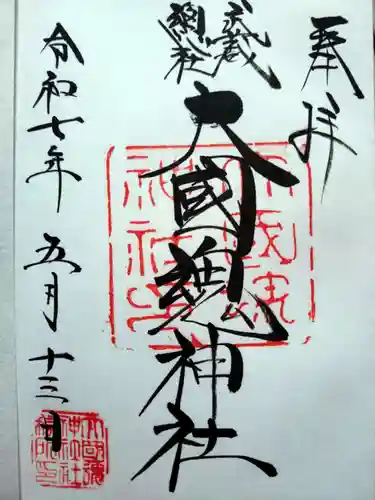 奉拝
武蔵
總社
大國魂神社
令和七年 五月 十三日